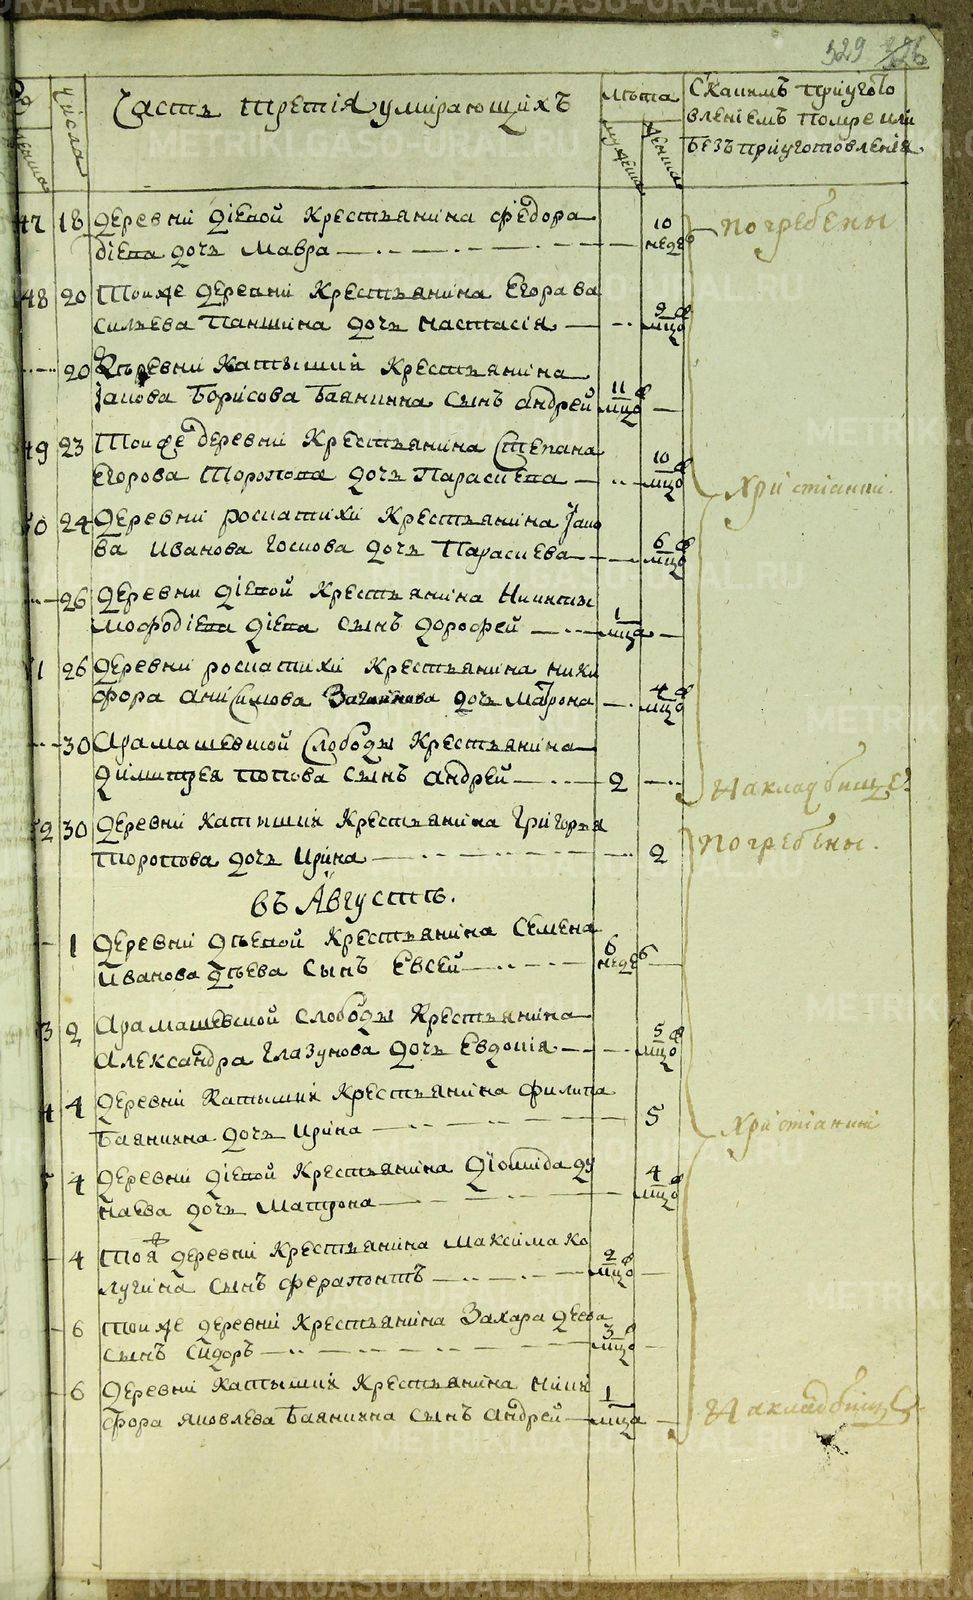 529 326
числа
женска
Часть третія умирающихъ
Лѣта
мужеска
женска
С каимъ приугото
вленіемъ помре или
безъ приуготовленія
47 18 Деревни Діевой Крестьянина Федора
10
Погребены
Діева дочь Мавра
неде
48 20 Тоиже деревни Крестьянина Егора Ва
сильева Паншина дочь Настасія
9
мцо
20 Деревни Катышки Крестьянина
Іакова Борисова Баянкина сынъ Андрей
11
мцо
49 23 Тоиже деревни Крестьянина Степана
Егорова Торопова дочь Параскева
10
мцо
Христианий.
50 24 Деревни роскатихи Крестьянина Іако
ва Иванова Госкова дочь Параскева
6
мцо
26 Деревни Діевой Крестьянина Никиты
Мофодіева Діева сынъ Дорофей
1
мца
51 26 Деревни роскатихи Крестьянина Ники
фора Анісимова дочь Матрона
4
мцо
30 Арамашевской Слободы Крестьянина
Димитрея Попова сынъ Андрей 2
На кладбище
52 30 Деревни Катышки Крестьянина Григорья
Погребены.
Торопова дочь Ирина 2
Въ Августѣ.
1 Деревни Дѣевой Крестьянина Семена
Иванова Дѣева сынъ Евсей
6
неде
53 2 Арамашевской слободы Крестьянина
Александра Глазунова дочь Евдокія
5
мцо
4 4 Деревни Катышки Крестьянина Филипа
Баянкина дочь Ирина 5
Христианий
5 4 Деревни Діевой Крестьянина Діомида Ду
наева дочь Матрона
4
мцо
4 Тояж деревни Крестьянина Максима Ко
лугина сынъ Ферапонтъ
2
мцо
6 Тоиже деревни Крестьянина Захара Деева
сынъ Сидоръ
3
мцо
6 Деревни Катышки Крестьянина Ники
фора Яковлева Баянкина сынъ Андрей
1
мца
На кладбище
METRIKI.GASU-URAL.RU